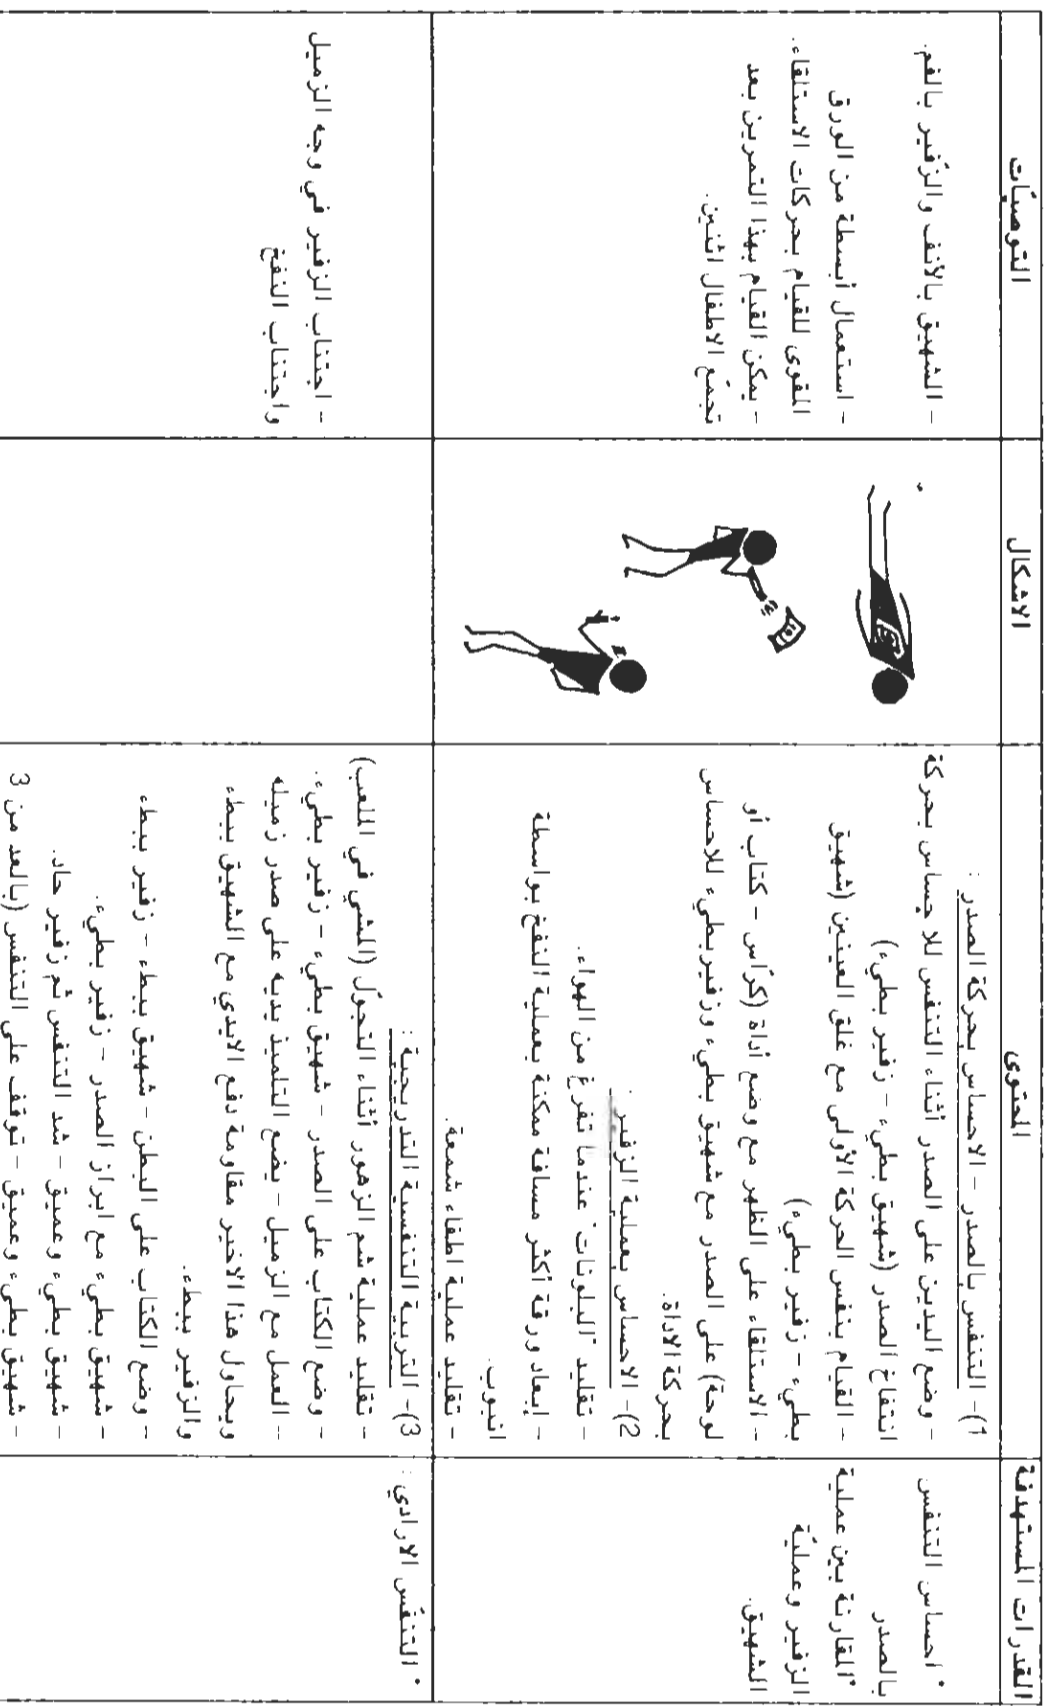 القدرات المستهدفة
المحتوى
الاشكال
التوصيات
* احساس التنفس
بالصدر
* المقارنة بين عملية
الزفير وعملية
الشهيق.
1)- التنفس بالصدر - الاحساس بحركة الصدر :
- وضع اليدين على الصدر أثناء التنفس للاحساس بحركة
انتفاخ الصدر (شهيق بطيء - زفير بطيء)
- القيام بنفس الحركة الأولى مع غلق العينين (شهيق
بطيء - زفير بطيء)
- الاستلقاء على الظهر مع وضع أداة (كراس - كتاب أو
لوحة) على الصدر مع شهيق بطيء وزفير بطيء للاحساس
بحركة الاداة.
2)- الاحساس بعملية الزفير :
- تقليد "البلونات" عندما تفرغ من الهواء.
- إبعاد ورقة أكثر مسافة ممكنة بعملية النفخ بواسطة
انبوب.
- تقليد عملية اطفاء شمعة.
- الشهيق بالأنف والزفير بالفم.
- استعمال أبسطة من الورق
المقوى للقيام بحركات الاستلقاء.
- يمكن القيام بهذا التمرين بعد
تجمّع الاطفال اثنين.
* التنفّس الارادي :
3)- التربية التنفسية التدريجية :
- تقليد عملية شم الزهور أثناء التجوّل (المشي في الملعب)
- وضع الكتاب على الصدر - شهيق بطيء - زفير بطيء.
- العمل مع الزميل - يضع التلميذ يديه على صدر زميله
ويحاول هذا الاخير مقاومة دفع الايدي مع الشهيق ببطء
والزفير ببطء.
- وضع الكتاب على البطن - شهيق ببطء - زفير ببطء
- شهيق بطيء مع ابراز الصدر - زفير بطيء.
- شهيق بطيء وعميق - شد التنفس ثم زفير حاد.
- شهيق بطيء وعميق - توقف على التنفس (بالعد من 3
- اجتناب الزفير في وجه الزميل
واجتناب النفخ